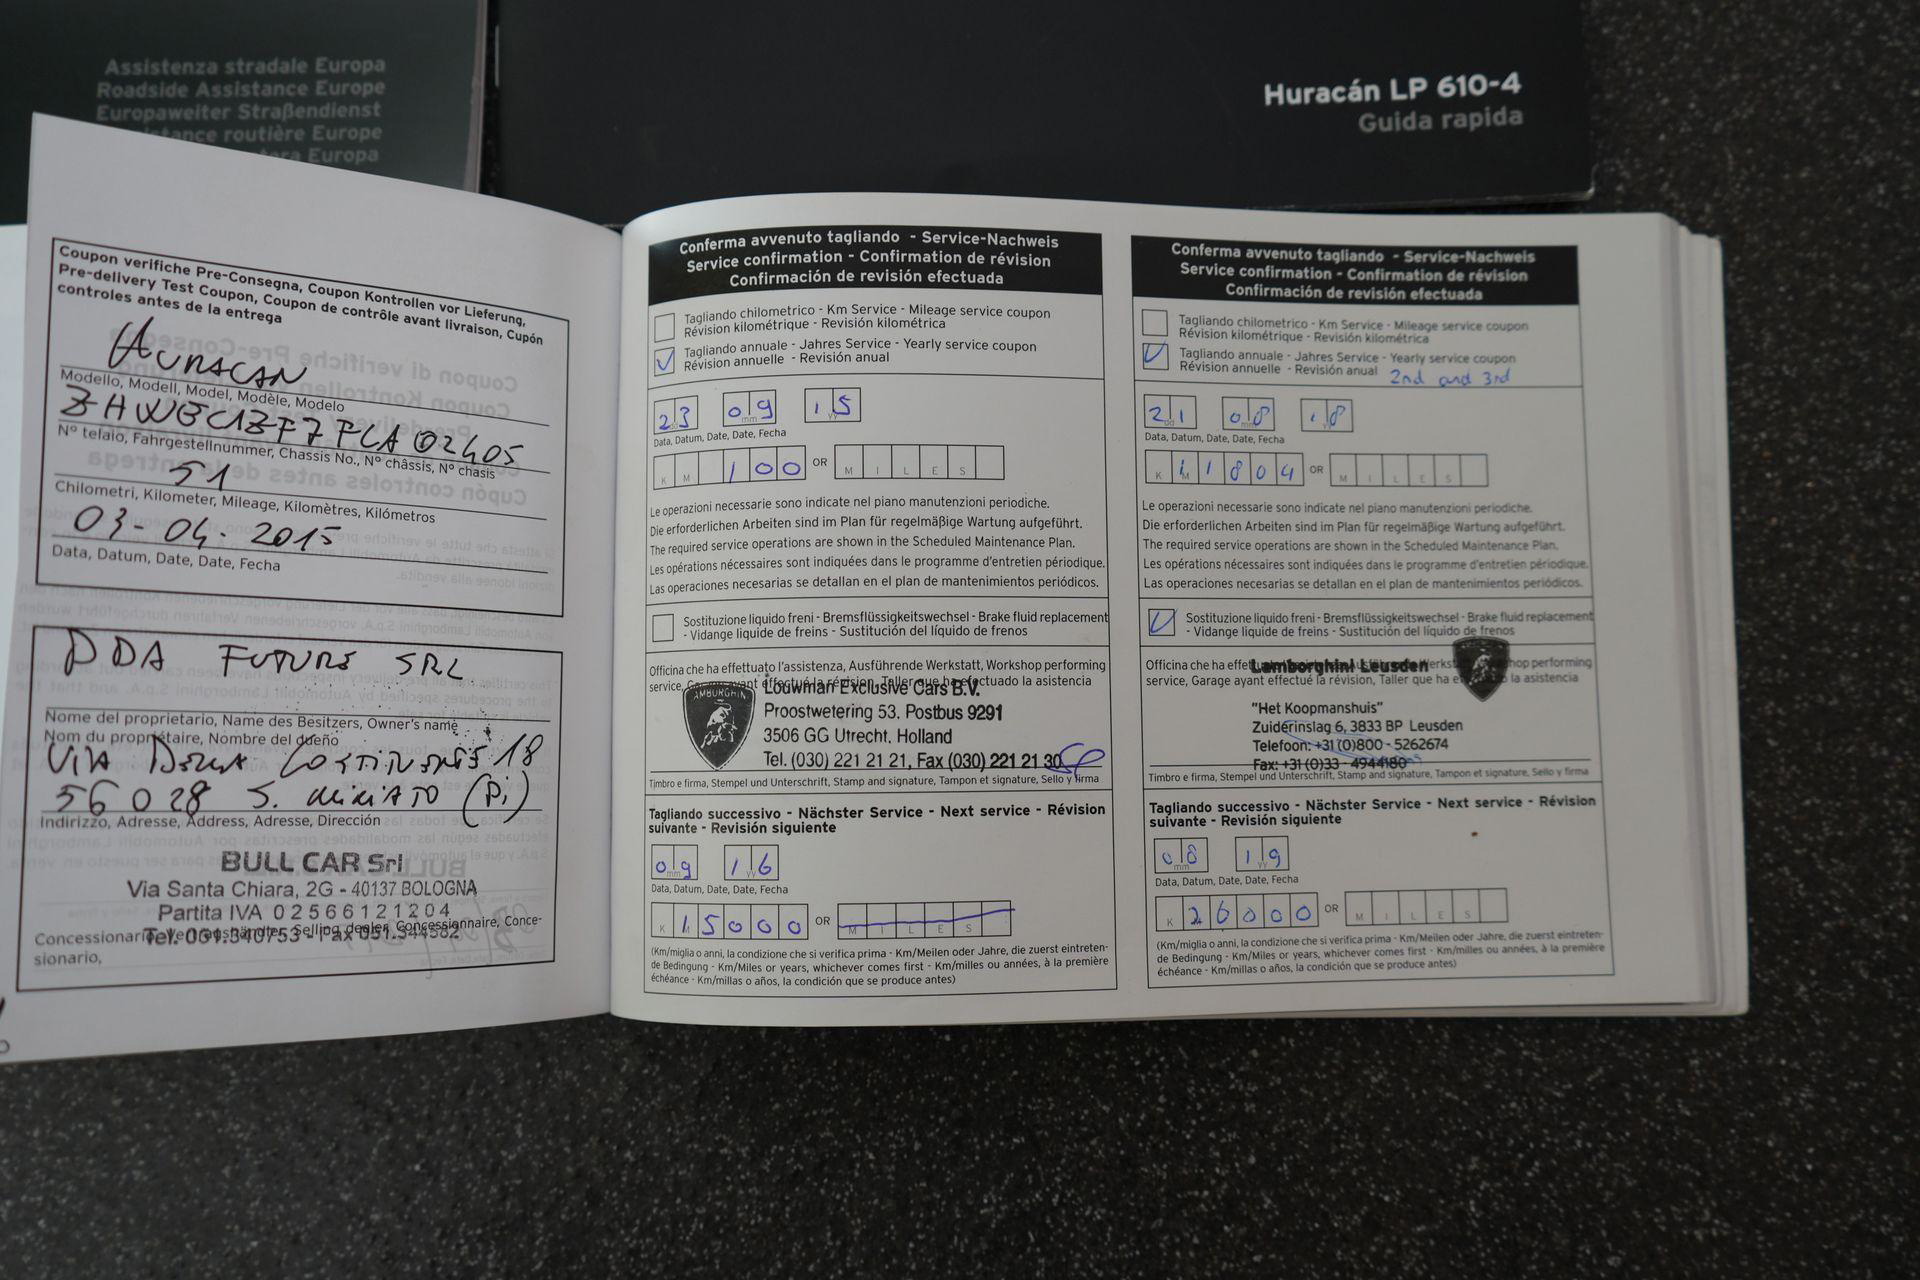 Assistenza stradale Europa
Roadside Assistance Europe
Europaweiter Straßendienst
tance routière Europe
Europa
Huracán LP 610-4
Guida rapida
Coupon verifiche Pre-Consegna, Coupon Kontrollen vor Lieferung,
Pre-delivery Test Coupon, Coupon de contrôle avant livraison, Cupón
controles antes de la entrega
HURACAN
Modello, Modell, Model, Modèle, Modelo
ZHWEC1ZF7FLA02405
N° telaio, Fahrgestellnummer, Chassis No., N° châssis, N° chasis
51
Chilometri, Kilometer, Mileage, Kilomètres, Kilómetros
03-04-2015
Data, Datum, Date, Date, Fecha
DDA FUTURE SRL
Nome del proprietario, Name des Besitzers, Owner's name
Nom du propriétaire, Nombre del dueño
VIA DELLA 18
56028 S. MINIATO (Pi)
Indirizzo, Adresse, Address, Adresse, Dirección
BULL CAR Srl
Via Santa Chiara, 2G - 40137 BOLOGNA
Partita IVA 02566121204
Tel. 051.340753 - Fax 051.344582
Selling dealer, Concessionnaire, Conce-
sionario,
Conferma avvenuto tagliando - Service-Nachweis
Service confirmation - Confirmation de révision
Confirmación de revisión efectuada
Tagliando chilometrico - Km Service - Mileage service coupon
Révision kilométrique - Revisión kilométrica
Tagliando annuale - Jahres Service - Yearly service coupon
Révision annuelle - Revisión anual
23 09 15
Data, Datum, Date, Date, Fecha
KM 100 OR MILES
Le operazioni necessarie sono indicate nel piano manutenzioni periodiche.
Die erforderlichen Arbeiten sind im Plan für regelmäßige Wartung aufgeführt.
The required service operations are shown in the Scheduled Maintenance Plan.
Les opérations nécessaires sont indiquées dans le programme d'entretien périodique.
Las operaciones necesarias se detallan en el plan de mantenimientos periódicos.
Sostituzione liquido freni - Bremsflüssigkeitswechsel - Brake fluid replacement
- Vidange liquide de freins - Sustitución del líquido de frenos
Officina che ha effettuato l'assistenza, Ausführende Werkstatt, Workshop performing
service, Garage ayant effectué la révision, Taller que ha efectuado la asistencia
LAMBORGHINI
Louwman Exclusive Cars B.V.
Proostwetering 53. Postbus 9291
3506 GG Utrecht, Holland
Tel. (030) 221 21 21, Fax (030) 221 21 30
Timbro e firma, Stempel und Unterschrift, Stamp and signature, Tampon et signature, Sello y firma
Tagliando successivo - Nächster Service - Next service - Révision
suivante - Revisión siguiente
09 16
Data, Datum, Date, Date, Fecha
KM 15000 OR MILES
(Km/miglia o anni, la condizione che si verifica prima - Km/Meilen oder Jahre, die zuerst eintreten-
de Bedingung - Km/Miles or years, whichever comes first - Km/milles ou années, à la première
échéance - Km/millas o años, la condición que se produce antes)
Conferma avvenuto tagliando - Service-Nachweis
Service confirmation - Confirmation de révision
Confirmación de revisión efectuada
Tagliando chilometrico - Km Service - Mileage service coupon
Révision kilométrique - Revisión kilométrica
Tagliando annuale - Jahres Service - Yearly service coupon
Révision annuelle - Revisión anual 2nd and 3rd
21 08 18
Data, Datum, Date, Date, Fecha
KM 11804 OR MILES
Le operazioni necessarie sono indicate nel piano manutenzioni periodiche.
Die erforderlichen Arbeiten sind im Plan für regelmäßige Wartung aufgeführt.
The required service operations are shown in the Scheduled Maintenance Plan.
Les opérations nécessaires sont indiquées dans le programme d'entretien périodique.
Las operaciones necesarias se detallan en el plan de mantenimientos periódicos.
Sostituzione liquido freni - Bremsflüssigkeitswechsel - Brake fluid replacement
- Vidange liquide de freins - Sustitución del líquido de frenos
Officina che ha Workshop performing
Lamborghini Leusden
service, Garage ayant effectué la révision, Taller que ha efectuado la asistencia
"Het Koopmanshuis"
Zuiderinslag 6, 3833 BP Leusden
Telefoon: +31 (0)800 - 5262674
Fax: +31 (0)33 - 4944180
Timbro e firma, Stempel und Unterschrift, Stamp and signature, Tampon et signature, Sello y firma
Tagliando successivo - Nächster Service - Next service - Révision
suivante - Revisión siguiente
08 19
Data, Datum, Date, Date, Fecha
KM 26000 OR MILES
(Km/miglia o anni, la condizione che si verifica prima - Km/Meilen oder Jahre, die zuerst eintreten-
de Bedingung - Km/Miles or years, whichever comes first - Km/milles ou années, à la première
échéance - Km/millas o años, la condición que se produce antes)